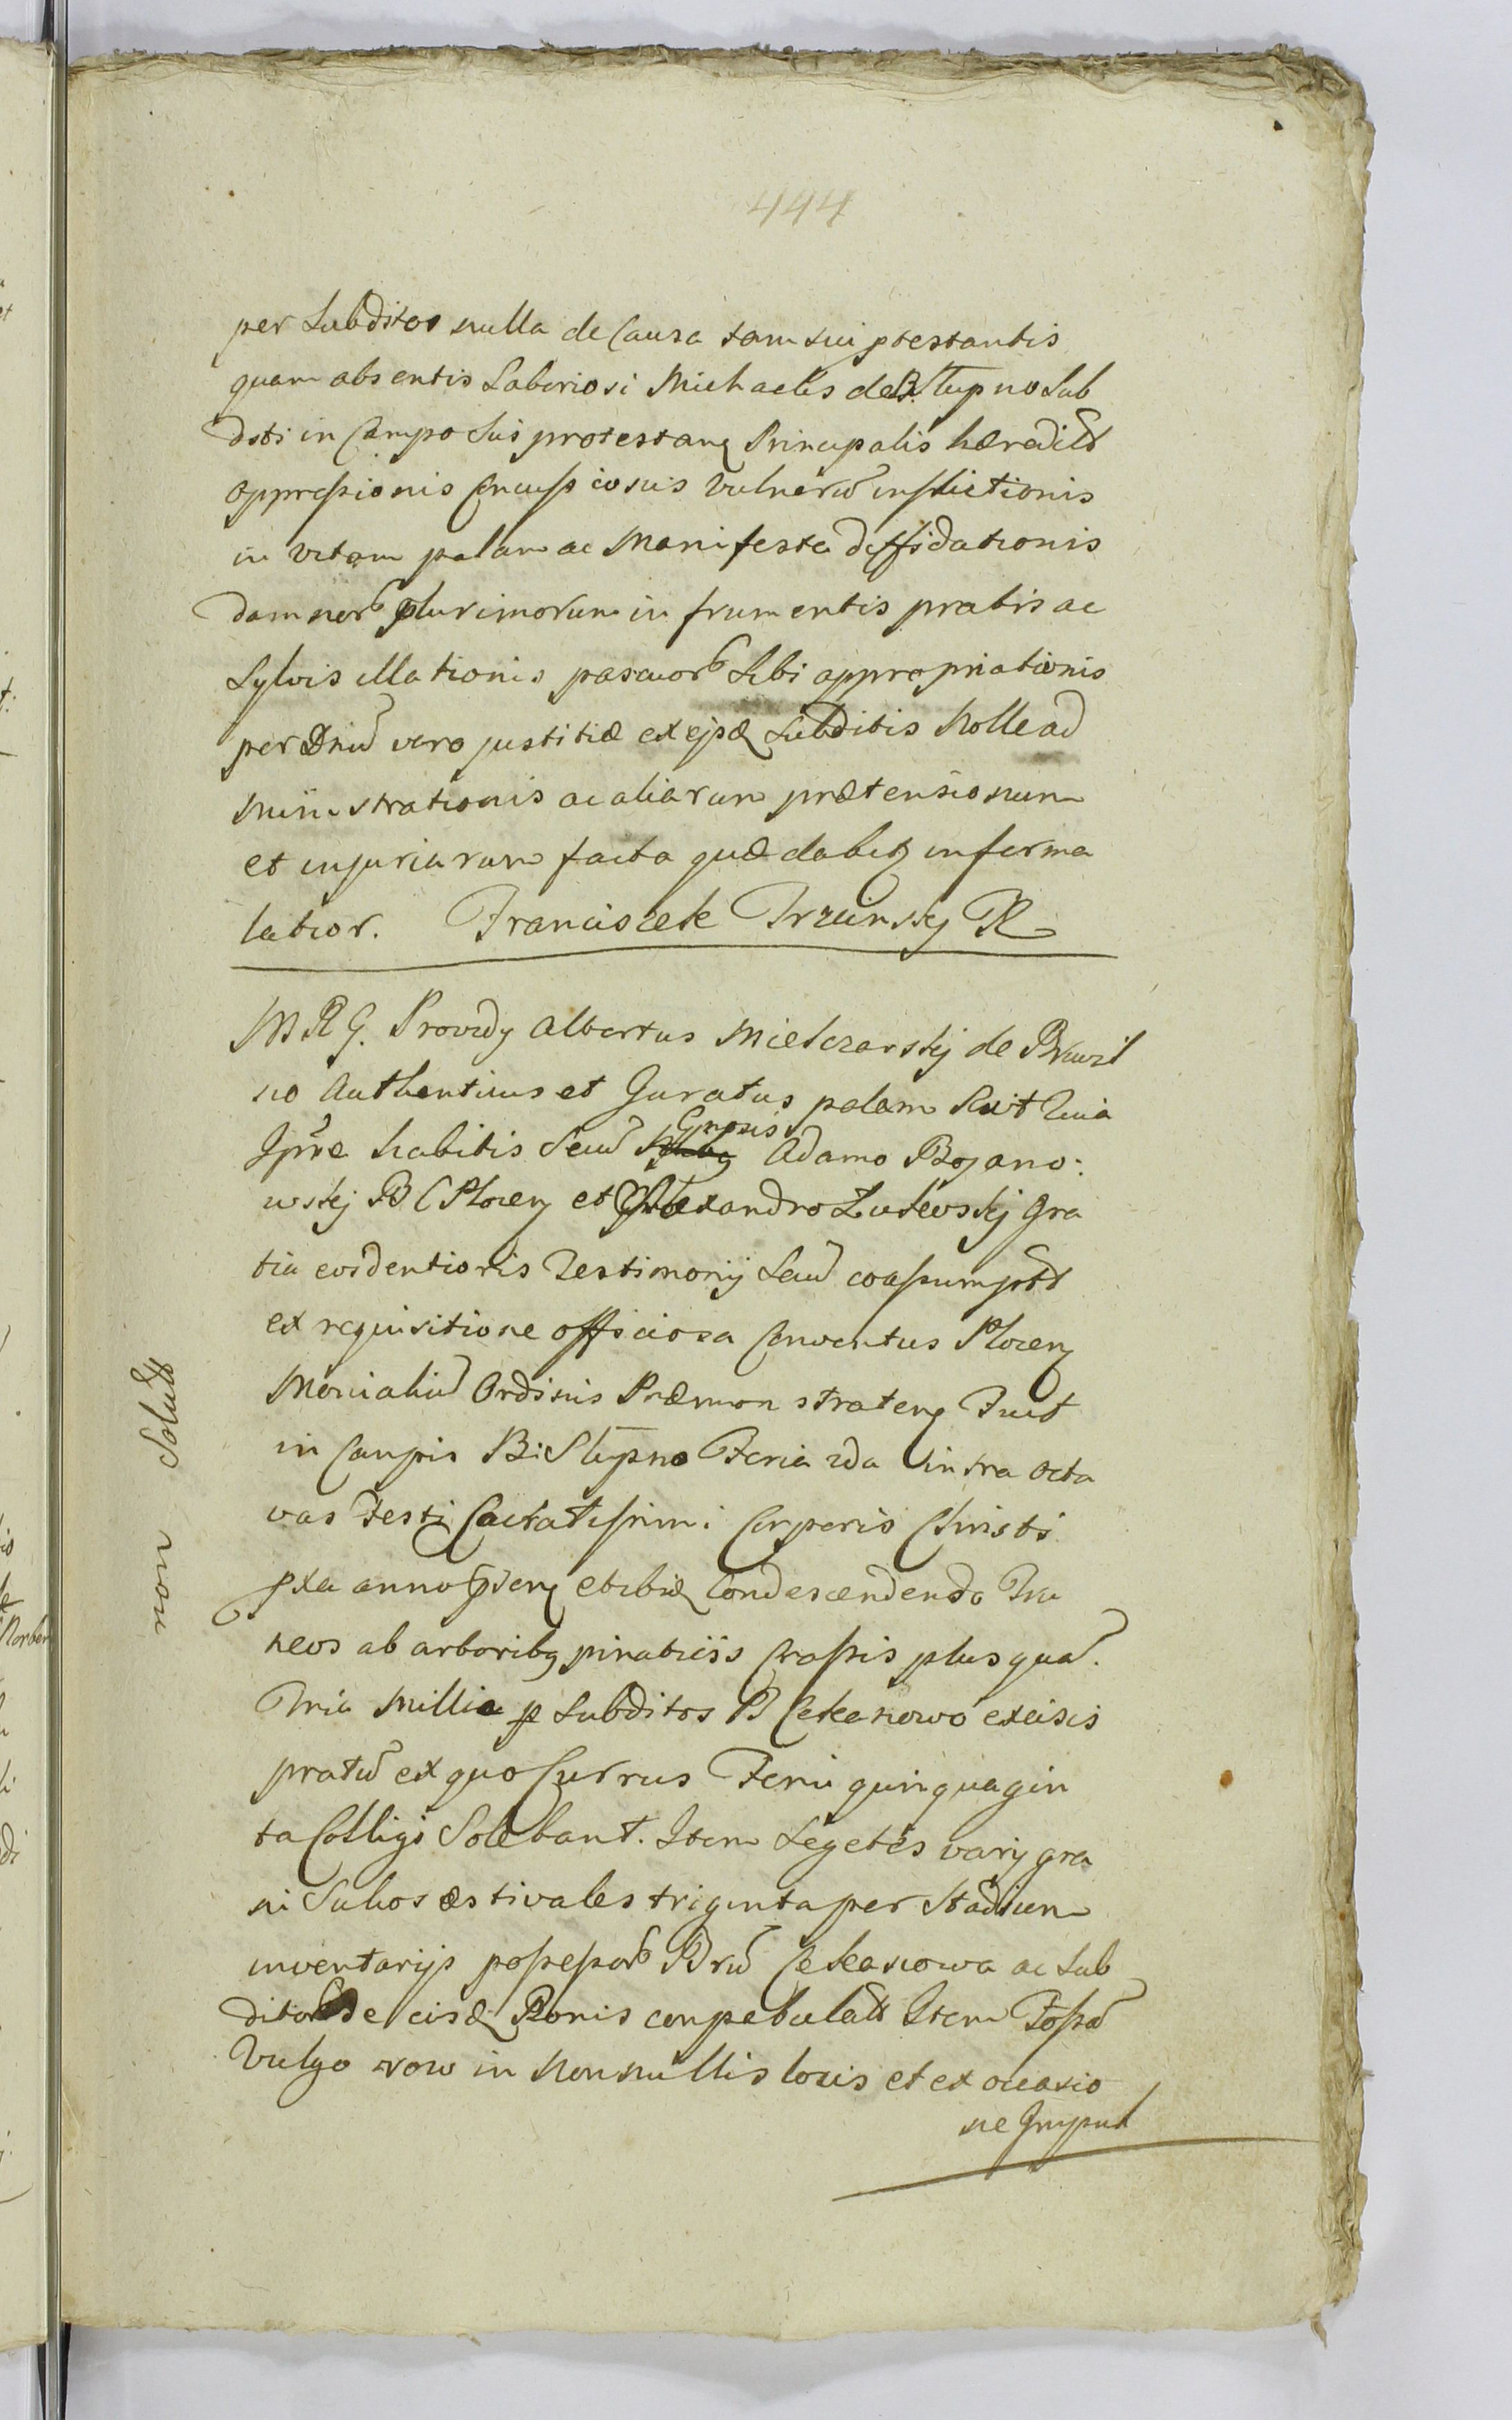 444
per Subditos nulla de Causa tam sui ptestantis
quam absentis Laboriosi Michaelis de B. Stupno Sub
diti in Campo Suis protestanz Principalis hæredit
oppressionis Concussionis vulnerū inflictionis
in vitam palam ac Manifeste diffidationis
damnorb plurimorum in frumentis pratis ac
Sylvis illationis pascuorb Sibi appropriationis
per Dnū vero justitiæ ex ejsdz Subditis Nolle ad
ministrationis ac aliarum prætensionum
et injuriarum facta quæ dabitz in forma
latior. Franciszek Trzcinskij R
M R G. Providz Albertus Mielczarskij de Brwil
no Authenticus et Juratus palam Rcit Quia
Ipse habitis Secū Gnosis Adamo Bojano:
wskij B C Plocenz et Alexandro Lutewskij Gra
tia evidentioris Testimonij Secū coassumptt
ex requisitione officiosa Conventus Plocenz
Monialiū Ordinis Præmonstratenz Fuit
in Campis B: Stupno Feria 2da intra Octa
vas Festi Sacratissimi Corporis Christi
pxa anno psenz et ibidz Condescendendo Tru
ncos ab arboribz pinaticiis Crassis plusquā
Tria Millia p Subditos B Cekanowo excisis
pratū ex quo Currus Feni quinquagin
ta Colligi Solebant. Item Segetes varij gra
ni Sulcos æstivales triginta per Stadium
inventarijs possessorb Brū Cekanowa ac Sub
ditorb de eisdz Bonis conpebulatt Item Fossā
Vulgo row in Nonnullis locis et ex occasio
ne Impul
non Solutt